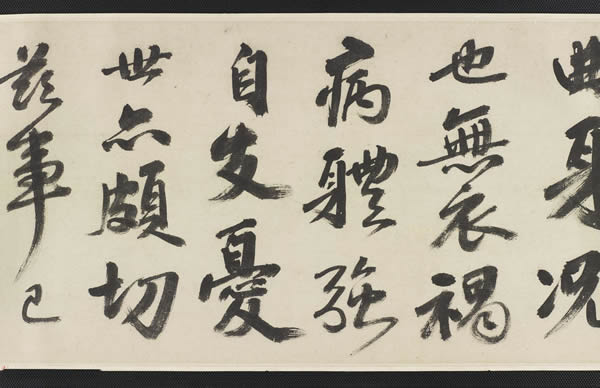 曲身況
也無衣褐
病體強
自支憂
世亦頗切
茲事已